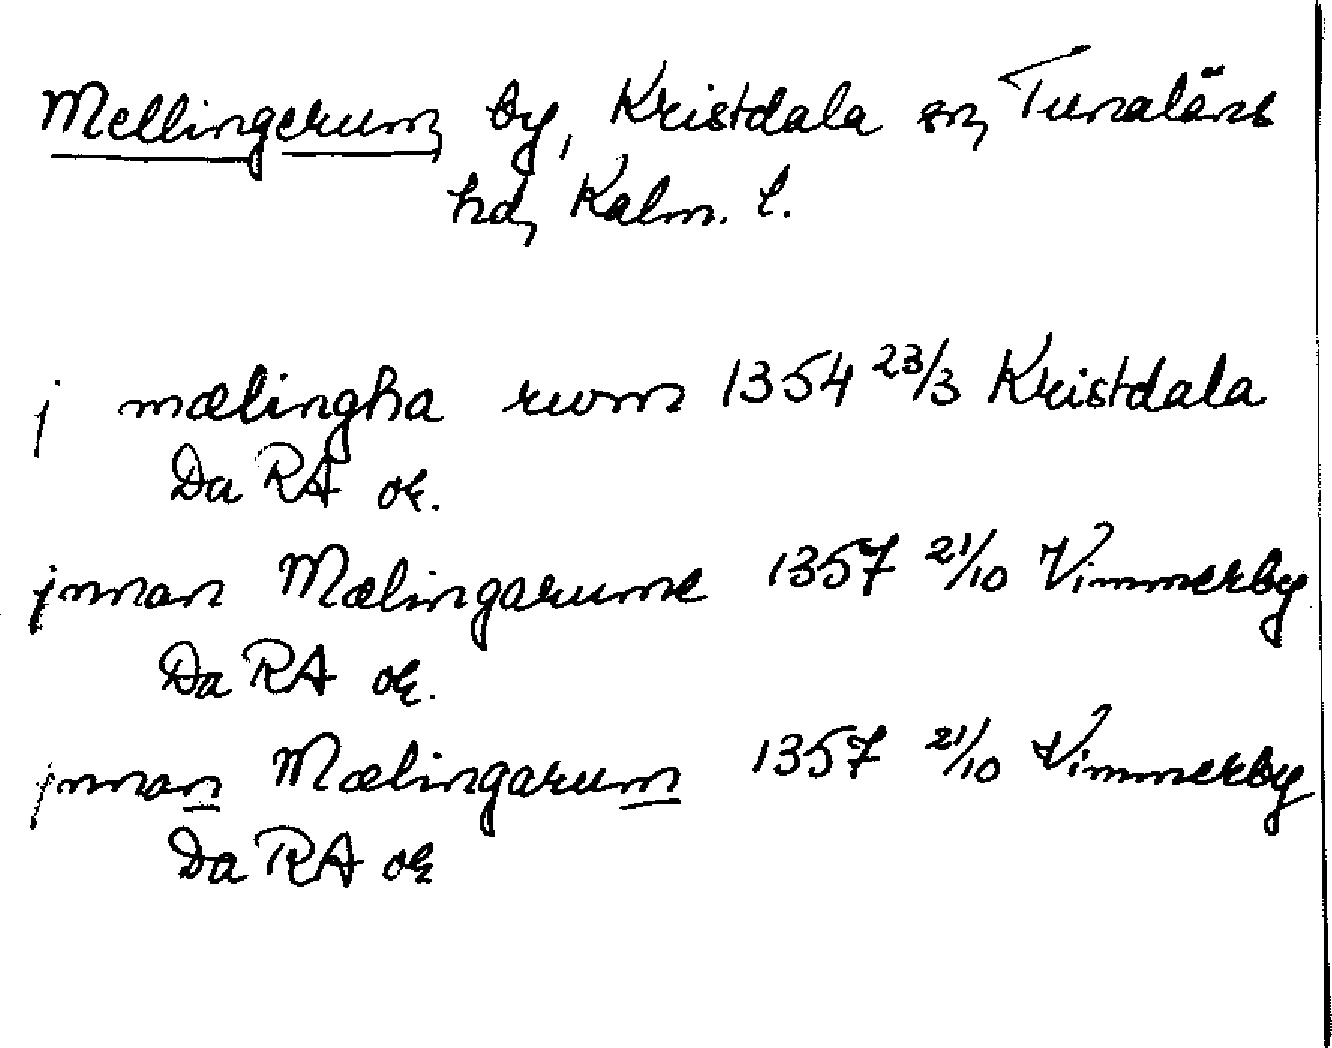 Mellingerum, by, Kristdala sn, Tunaläns
hd, Kalm. l.
j mælingha rwm 1354 23/3 Kristdala
Da RA or.
jnnan Mælingarume 1357 21/10 Vimmerby
Da RA or.
jnnan Mælingarum 1357 21/10 Vimmerby
Da RA or